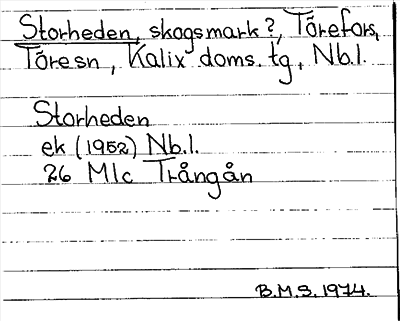 Storheden, skogsmark?, Törefors,
Töresn, Kalix doms. tg, Nb.l.
Storheden
ek (1952) Nb.l.
26 Mlc Trångån
B.M.S. 1974.